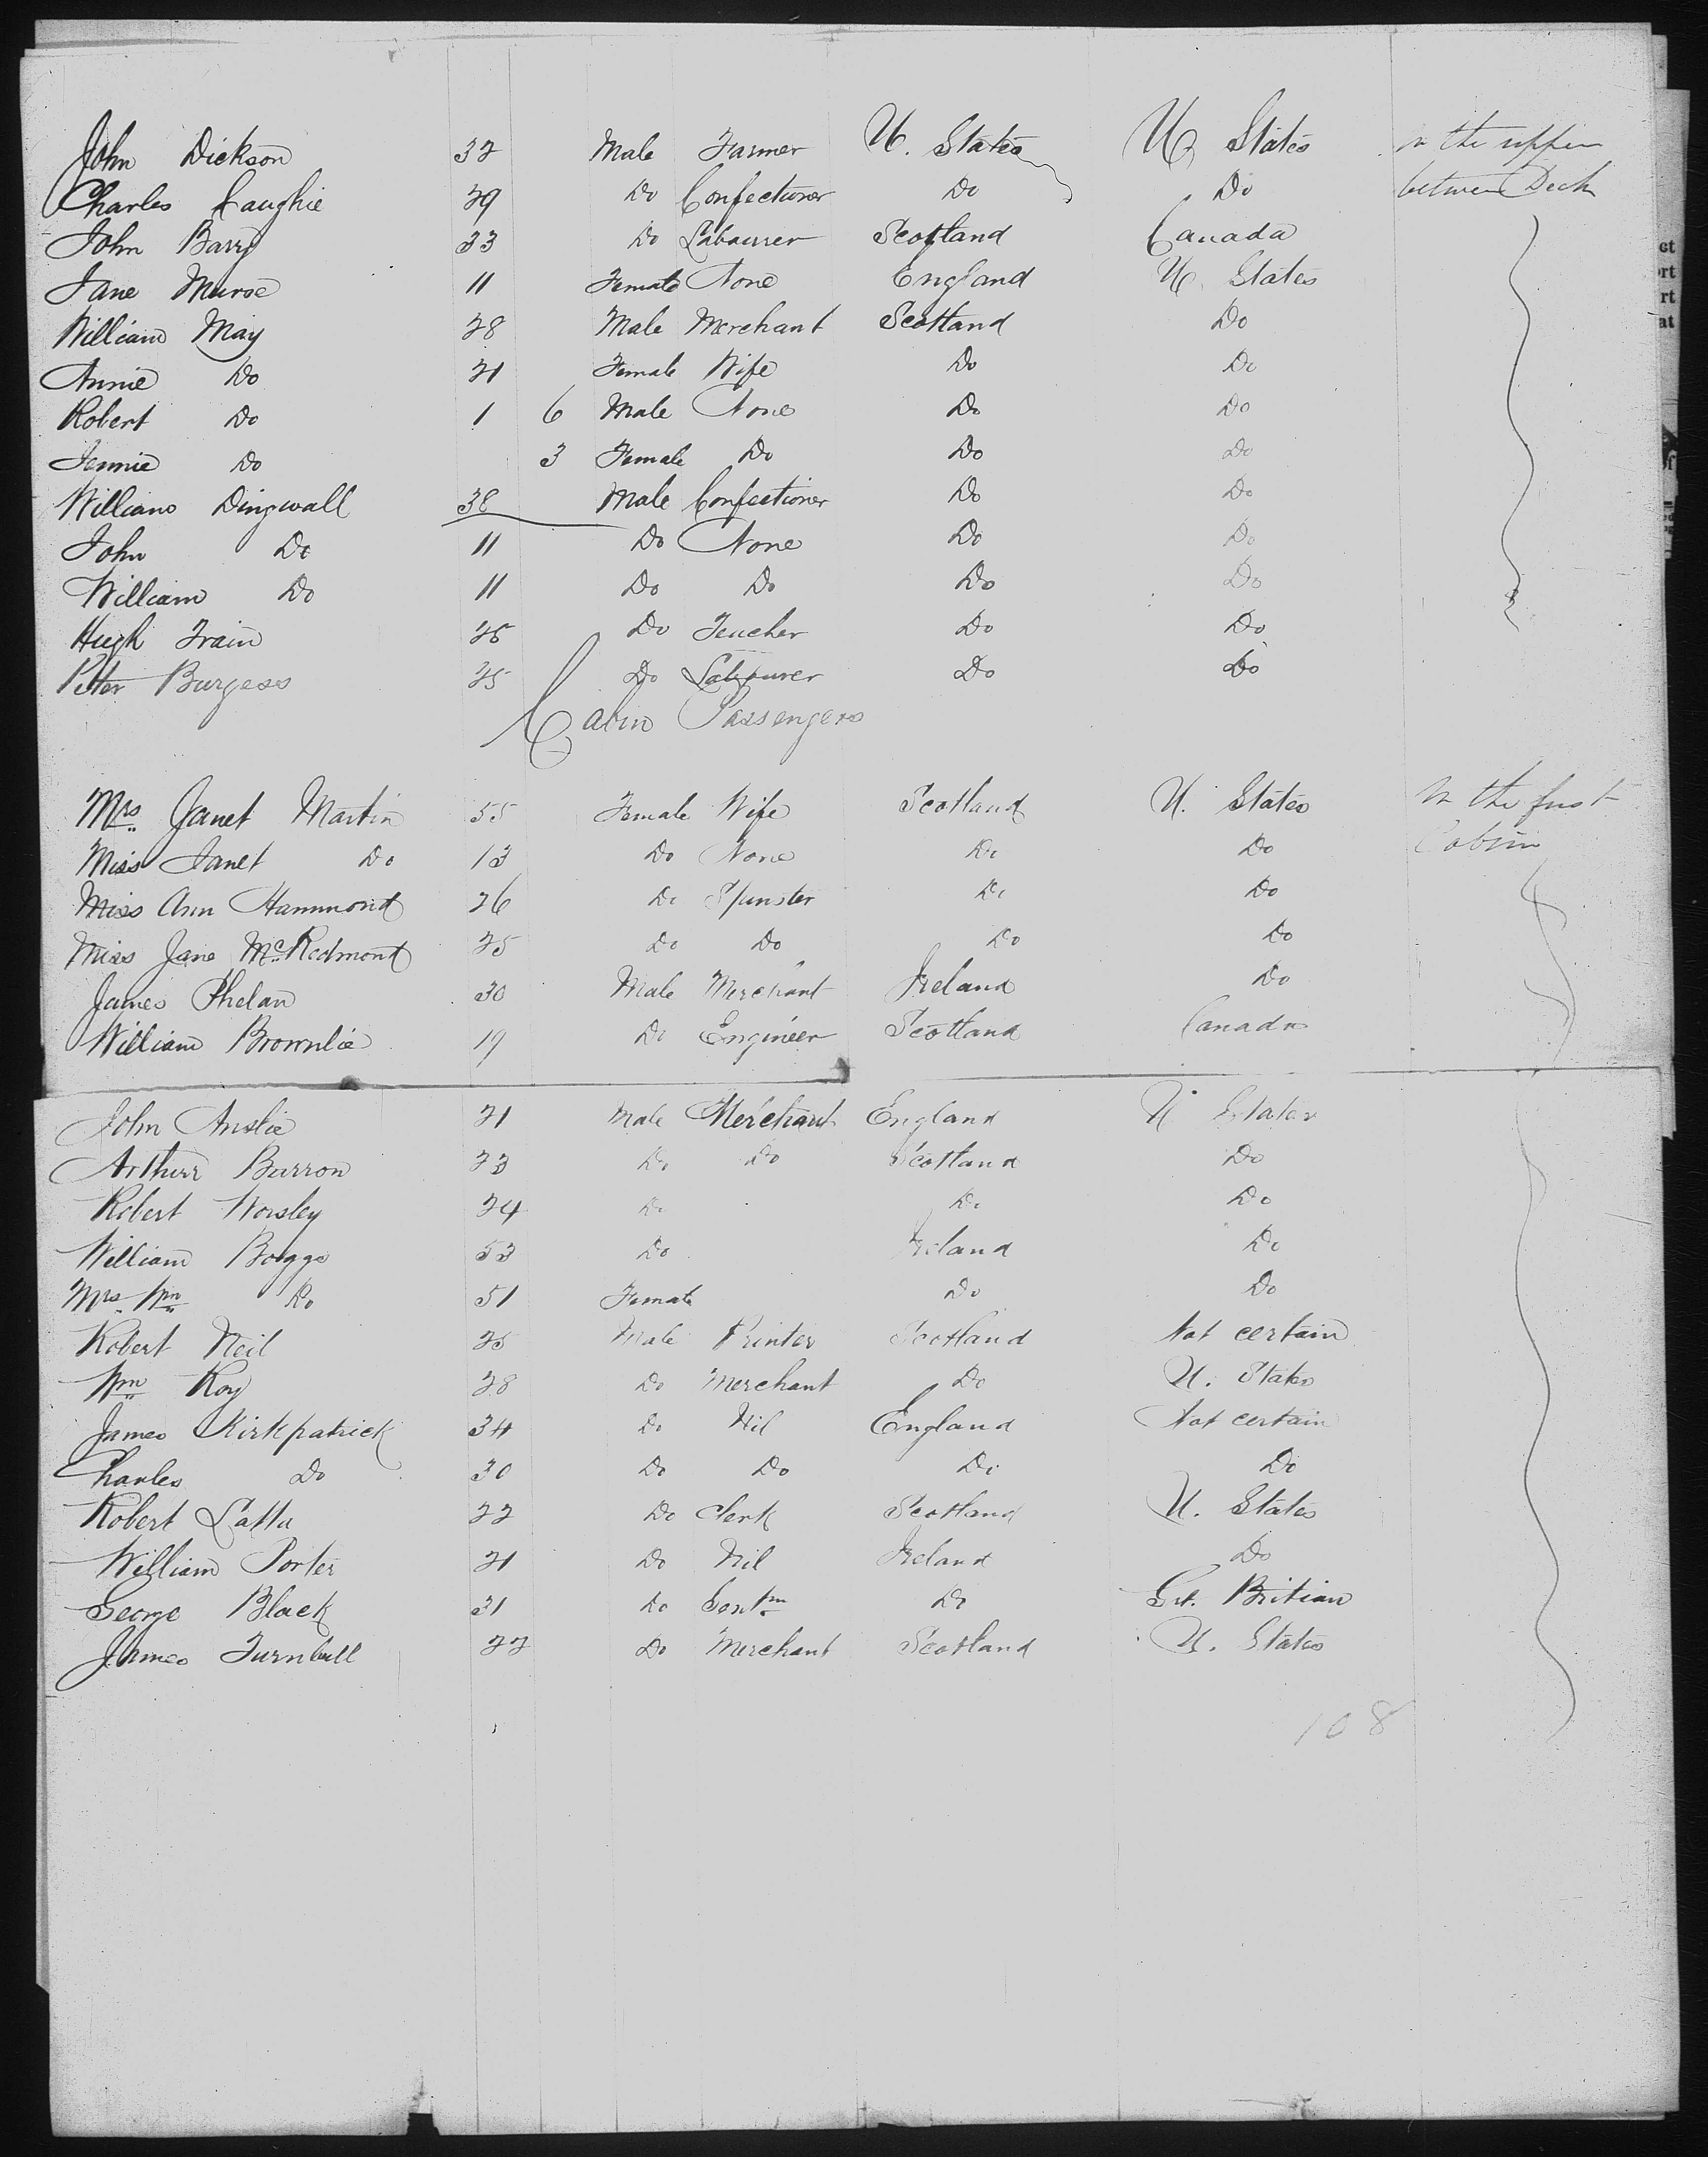 John Dickson 32 Male Farmer U. States U. States in the upper
Charles Laughie 29 Do Confectioner Do Do between Deck
John Barry 33 Do Labourer Scotland Canada
Jane Murse 11 Female None England U. States
William May 28 Male Merchant Scotland Do
Annie Do 21 Female Wife Do Do
Robert Do 1 6 Male None Do Do
Jennie Do 3 Female Do Do Do
William Dingwall 38 Male Confectioner Do Do
John Do 11 Do None Do Do
William Do 11 Do Do Do Do
Hugh Train 26 Do Teacher Do Do
Peter Burgess 25 Do Labourer Do Do
Cabin Passengers
Mrs Janet Martin 55 Female Wife Scotland U. States In the first
Miss Janet Do 13 Do None Do Do Cabin
Miss Ann Hammond 26 Do Spinster Do Do
Miss Jane McRedmont 25 Do Do Do Do
James Phelan 30 Male Merchant Ireland Do
William Brownlie 19 Do Engineer Scotland Canada
John Anslie 21 Male Merchant England U States
Arthur Barron 23 Do Do Scotland Do
Robert Worsley 24 Do Do Do
William Boggs 53 Do Ireland Do
Mrs Wm Do 51 Female Do Do
Robert Neil 25 Male Printer Scotland Not certain
Wm Roy 28 Do Merchant Do U. States
James Kirkpatrick 34 Do Nil England Not certain
Charles Do 30 Do Do Do Do
Robert Latta 22 Do Clerk Scotland U. States
William Porter 21 Do Nil Ireland Do
George Black 31 Do Gentm Do Gt. Britian
James Turnbull 22 Do Merchant Scotland U. States
108
ct
ort
rt
at